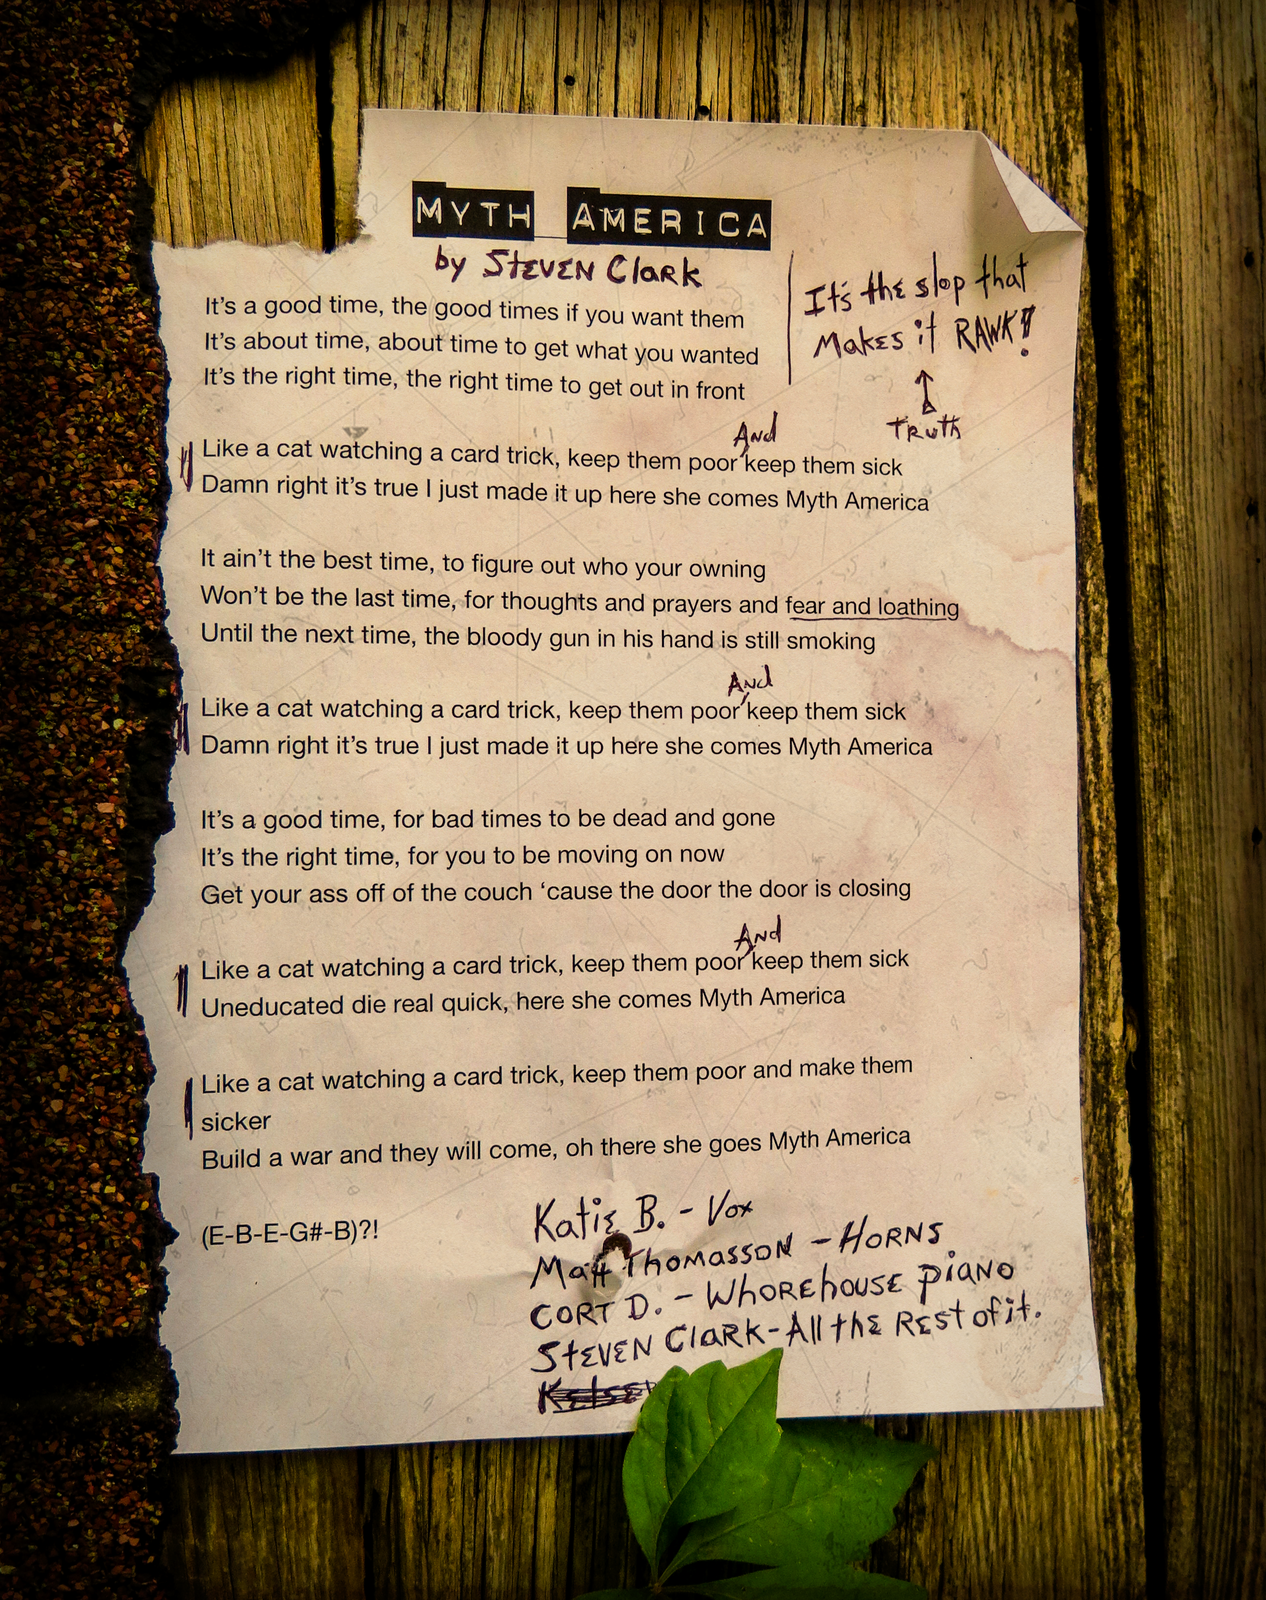 MYTH AMERICA
by STEVEN ClARK
It's the slop that
MAKES it RAWK!
TRUth
It's a good time, the good times if you want them
It's about time, about time to get what you wanted
It's the right time, the right time to get out in front
And
Like a cat watching a card trick, keep them poor keep them sick
Damn right it's true I just made it up here she comes Myth America
It ain't the best time, to figure out who your owning
Won't be the last time, for thoughts and prayers and fear and loathing
Until the next time, the bloody gun in his hand is still smoking
And
Like a cat watching a card trick, keep them poor keep them sick
Damn right it's true I just made it up here she comes Myth America
It's a good time, for bad times to be dead and gone
It's the right time, for you to be moving on now
Get your ass off of the couch ‘cause the door the door is closing
And
Like a cat watching a card trick, keep them poor keep them sick
Uneducated die real quick, here she comes Myth America
Like a cat watching a card trick, keep them poor and make them
sicker
Build a war and they will come, oh there she goes Myth America
(E-B-E-G#-B)?!
Katie B. - Vox
Matt Thomasson - HORNS
CORT D. - Whorehouse piano
STEVEN ClARK - All the REst of it.